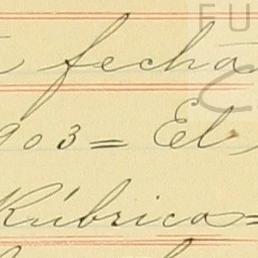 FU
fecha
903= El
Rúbricas=